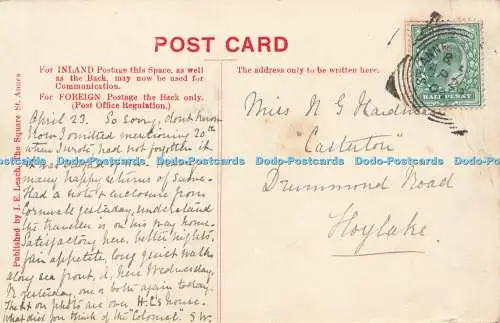 POST CARD
For INLAND Postage this Space, as well
as the Back, may now be used for
Communication.
For FOREIGN Postage the Back only.
(Post Office Regulation.)
The address only to be written here.
HALF PENNY
Published by J. E. Leach, The Square St. Annes
April 23. So sorry, don't know
How I omitted mentioning 20th
when I wrote, had not forgotten it
many happy returns of same.
Had a note & enclosure from
yesterday, understand
the traveller is on his way home.
Satisfactory here, better nights,
fair appetite, long quiet walks
along sea front, d. here Wednesday,
& yesterday, one is to be again today.
The on photo are over H.L's house.
What did you think of the "Colonel". S W.
Miss N G
"Easterton"
Drummond Road
Hoylake.
Dodo-Postcards Dodo-Postcards Dodo-Postcards Dodo-Postcards Dodo-Postcards